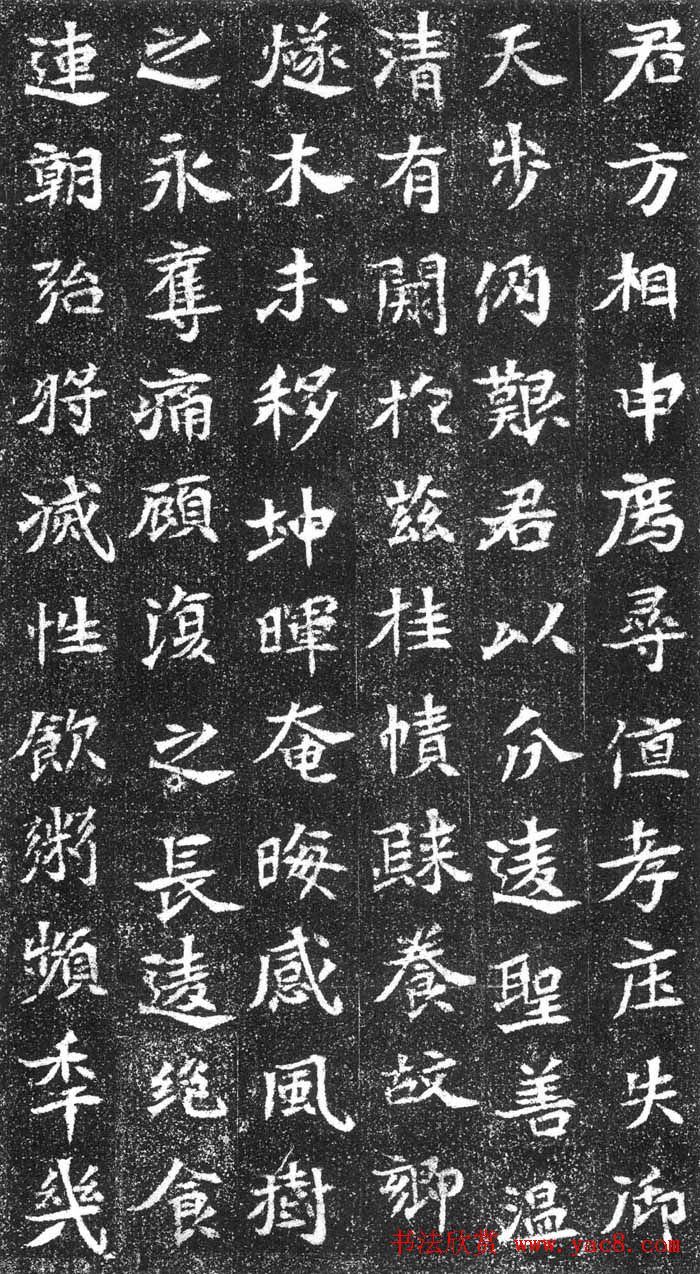 君方相申薦尋值孝庄失御
天步艱君以分違聖善温
清有闕於兹挂幘歸養故鄉
燧木未移坤暉奄晦感風樹
之永奪痛顧復之長違絕食
連朝殆將滅性飲粥頻年幾
书法欣赏 www.yac8.com